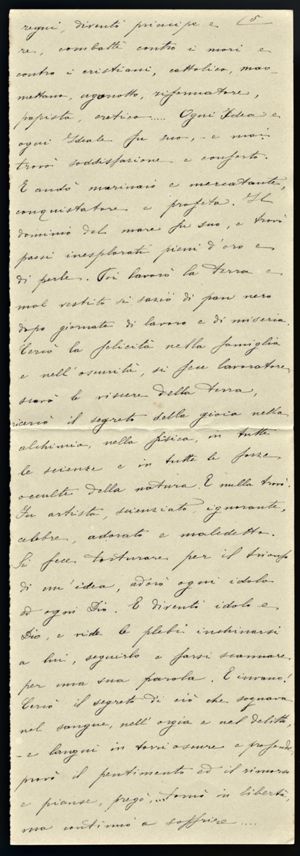 regni, diventò principe e 5
re, combattè contro i mori e
contro i cristiani, cattolico, mao-
mettano, ugonotto, riformatore,
papista, eretico.... Ogni Idea e
ogni Ideale fu suo, e mai
trovò soddisfazione e conforto.
E andò marinaio e mercatante,
conquistatore e profeta. Il
dominio del mare fu suo, e trovò
paesi inesplorati pieni d'oro e
di perle. Poi lavorò la terra e
mal vestito si saziò di pan nero
dopo giornate di lavoro e di miseria.
Cercò la felicità nella famiglia
e nell'oscurità, si fece lavoratore,
scavò le viscere della terra,
cercò il segreto della gioia nella
alchimia, nella fisica, in tutte
le scienze e in tutte le forze
occulte della natura. E nulla trovò.
Fu artista, scienziato, ignorante,
celebre, adorato e maledetto.
Si fece torturare per il trionfo
di un'idea, adorò ogni idolo
ed ogni Dio. E diventò idolo e
Dio, e vide le plebi inchinarsi
a lui, seguirlo e farsi scannare
per una sua parola. E invano!
Cercò il segreto di ciò che sognava
nel sangue, nell'orgia e nel delitto,
- e languì in torri oscure e profonde,
provò il pentimento ed il rimorso
e pianse, pregò,... tornò in libertà,
ma continuò a soffrire....